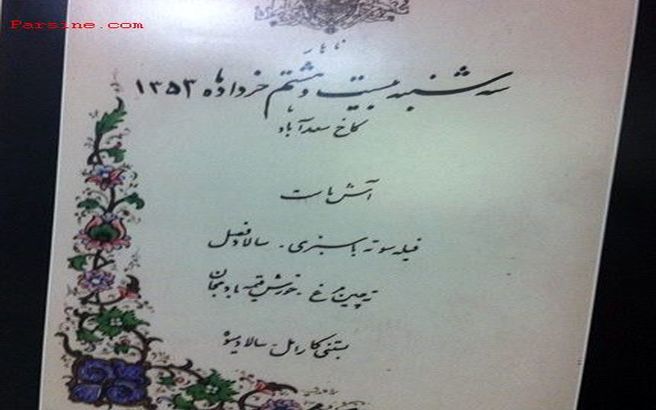 Parsine.com
ناهار
سه شنبه بیست و هشتم خرداد ماه ۱۳۵۳
کاخ سعدآباد
آش ماست
فیله سوته با سبزی - سالاد فصل
ته چین مرغ - خورش قیمه بادمجان
بستنی کارامل - سالاد میوه